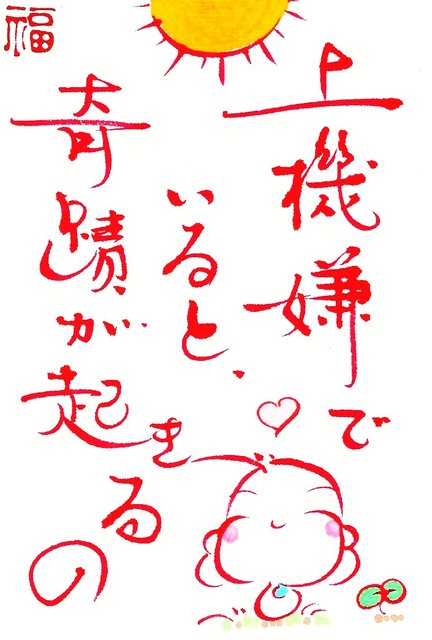 上機嫌で
いると、
奇蹟が起きるの
福